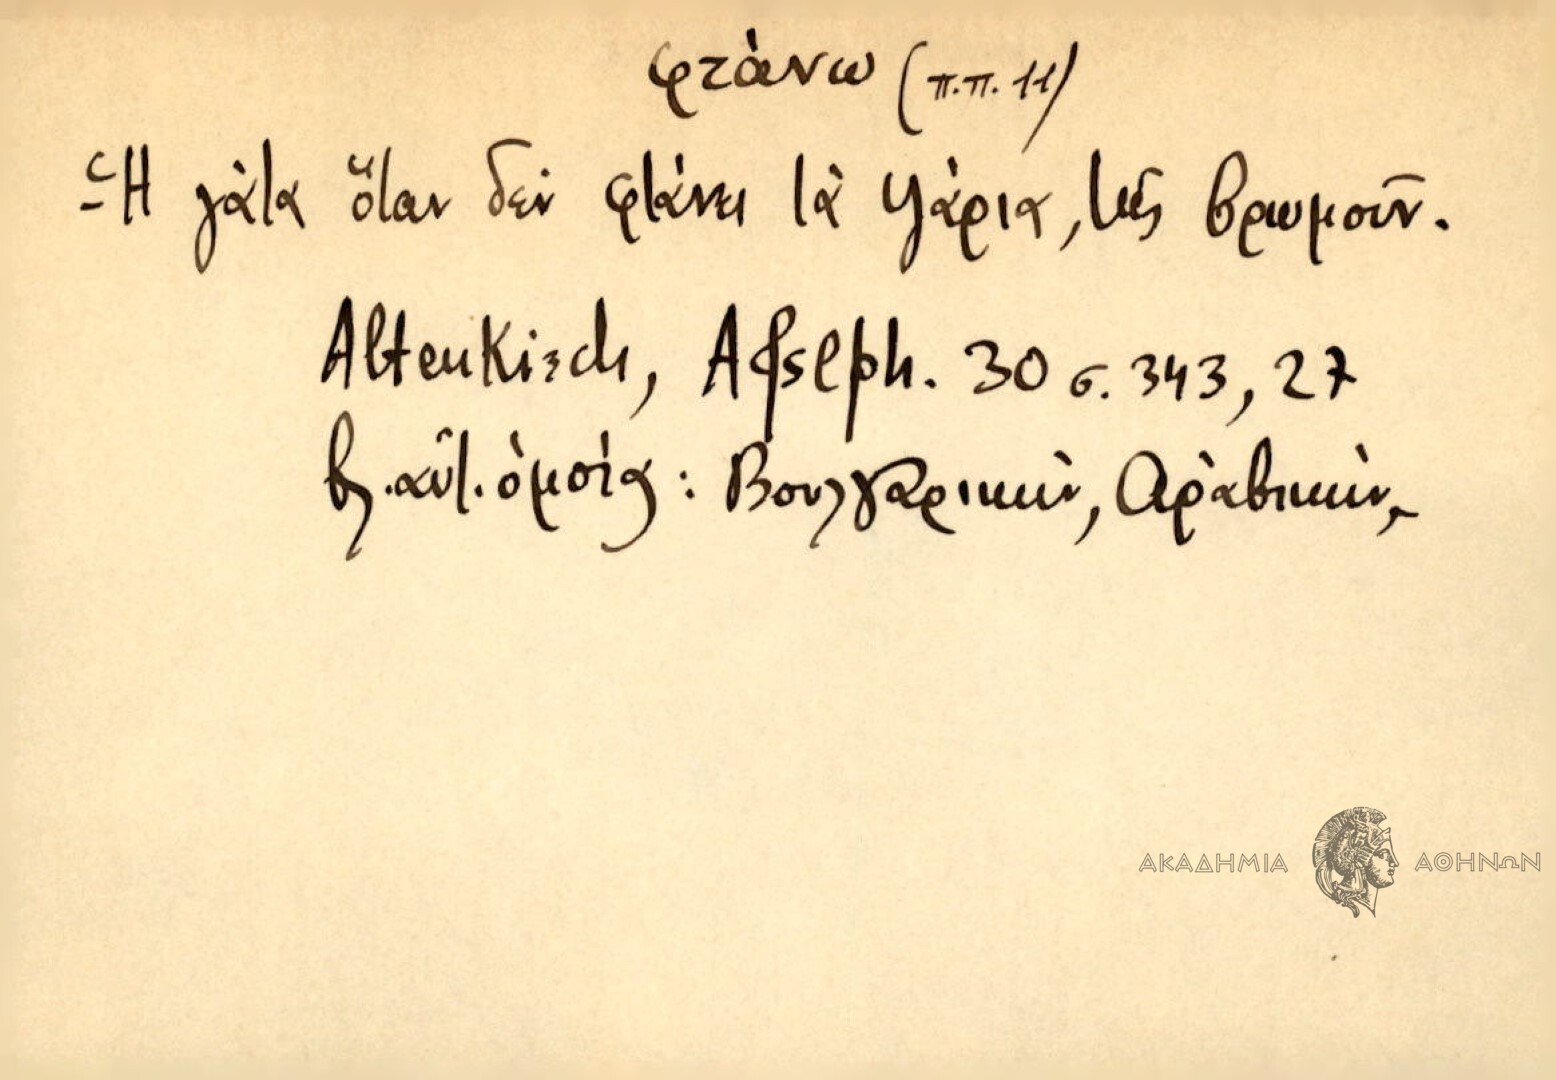 φτάνω (π.π. 11)
- Ἡ γάτα ὅταν δὲν φτάνει τὰ ψάρια, τῆς βρωμοῦν.
Altenkirch, Afslph. 30 σ. 343, 27
βλ. αὐτ. ὁμοία: Βουλγαρικὴν, Ἀραβικὴν,
ΑΚΑΔΗΜΙΑ ΑΘΗΝΩΝ